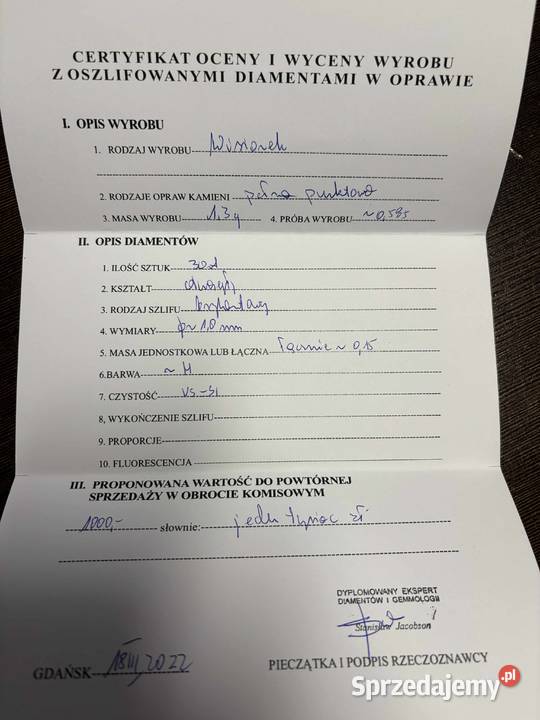 CERTYFIKAT OCENY I WYCENY WYROBU
Z OSZLIFOWANYMI DIAMENTAMI W OPRAWIE
I. OPIS WYROBU
1. RODZAJ WYROBU Wisiorek
2. RODZAJE OPRAW KAMIENI pełna punktowa
3. MASA WYROBU 1.3g 4. PRÓBA WYROBU ~0,585
II. OPIS DIAMENTÓW
1. ILOŚĆ SZTUK 30szt
2. KSZTAŁT okrągły
3. RODZAJ SZLIFU brylantowy
4. WYMIARY φ~1.0 mm
5. MASA JEDNOSTKOWA LUB ŁĄCZNA łącznie ~0,15
6.BARWA ~H
7. CZYSTOŚĆ VS-SI
8, WYKOŃCZENIE SZLIFU
9. PROPORCJE
10. FLUORESCENCJA
III. PROPONOWANA WARTOŚĆ DO POWTÓRNEJ
SPRZEDAŻY W OBROCIE KOMISOWYM
1000,- słownie: jeden tysiąc zł
DYPLOMOWANY EKSPERT
DIAMENTÓW I GEMMOLOGII
Stanisław Jacobson
GDAŃSK 18 III 2022
PIECZĄTKA I PODPIS RZECZOZNAWCY
Sprzedajemy.pl